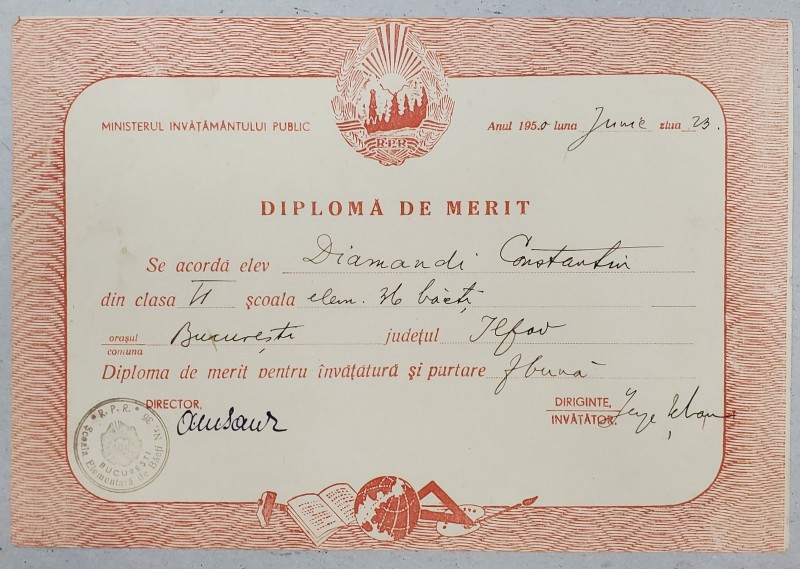 R.P.R.
MINISTERUL INVĂȚĂMÂNTULUI PUBLIC
Anul 1950 luna Junie ziua 23.
DIPLOMĂ DE MERIT
Se acordă elev Diamandi Constantin
din clasa II școala elem. 36 băeți
orașul București județul Ilfov
comuna
Diploma de merit pentru învățătură și purtare f bună
DIRECTOR,
DIRIGINTE,
INVĂȚĂTOR,
* R.P.R. * Școala Elementară de Băeți Nr. 36
BUCUREȘTI